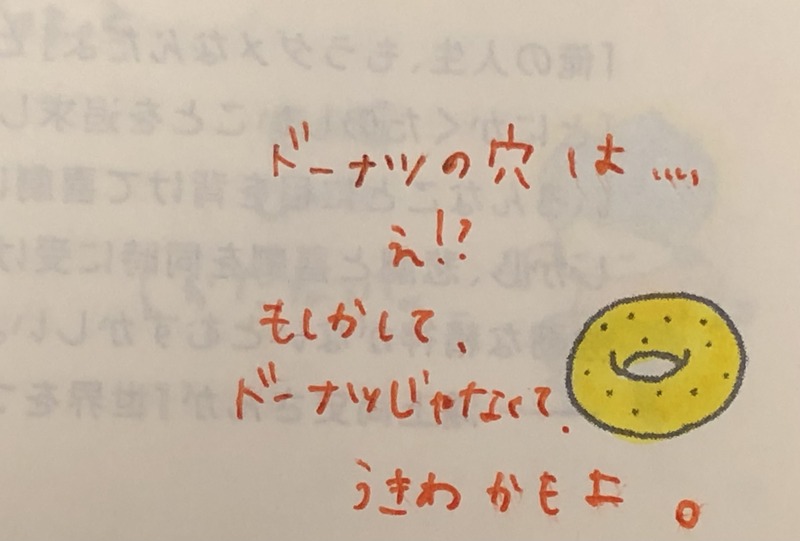 ドーナツの穴は....
え!?
もしかして、
ドーナツじゃなくて、
うきわかもよ。